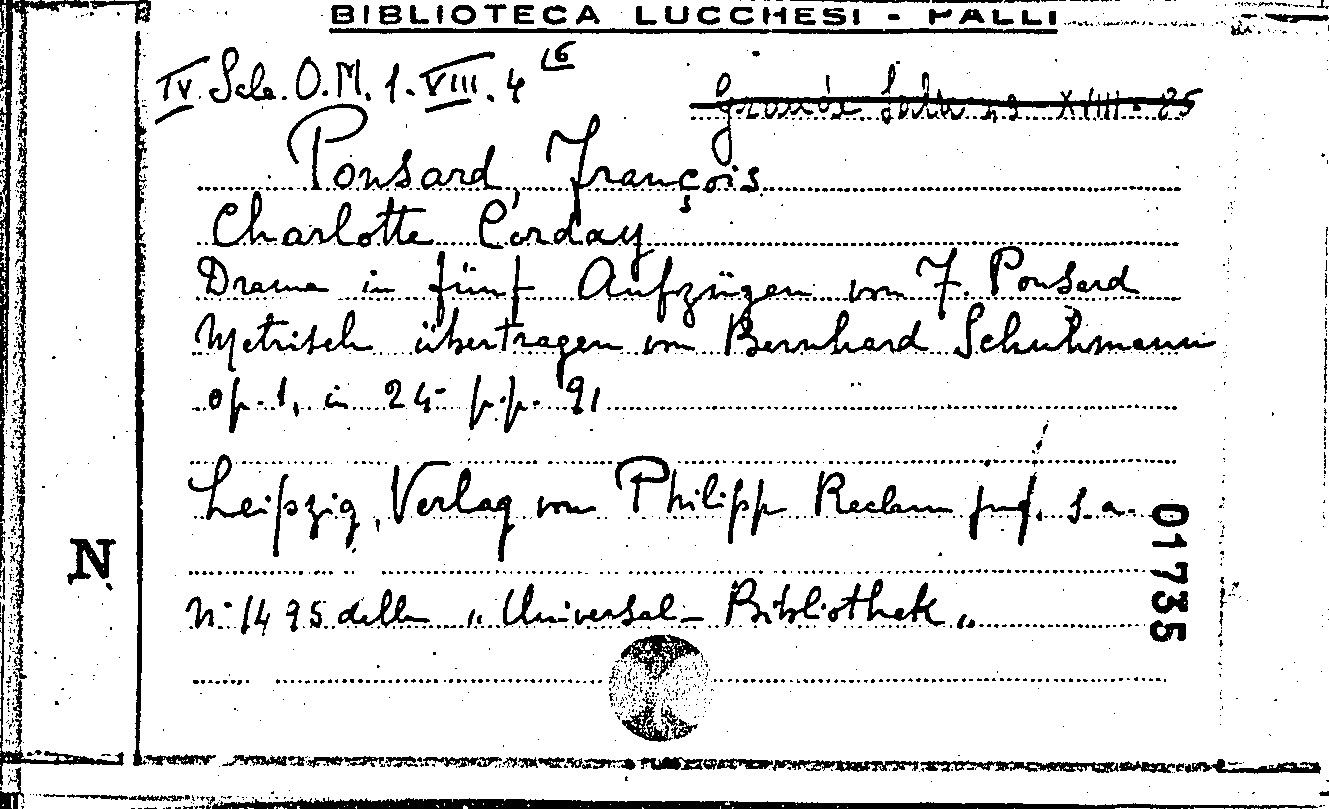 BIBLIOTECA LUCCHESI - PALLI
IV. Scle. O.M. 1. VIII. 4 16
Grande Sala XVIII - 85
Ponsard, François
Charlotte Corday
Drama in fünf Aufzügen von F. Ponsard
Metrisch übertragen von Bernhard Schuhmann
op. 1, in 24- p.p. 91
Leipzig, Verlag von Philipp Reclam jun. s. a.
N. 1495 della „Universal-Bibliothek„
N
01735